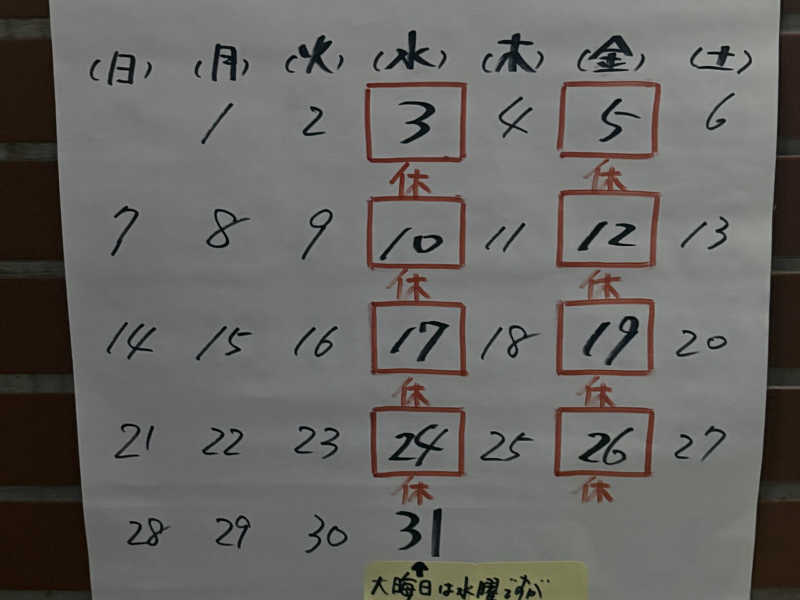 (日) (月) (火) (水) (木) (金) (土)
1 2 3 4 5 6
休 休
7 8 9 10 11 12 13
休 休
14 15 16 17 18 19 20
休 休
21 22 23 24 25 26 27
休 休
28 29 30 31
大晦日は水曜ですが